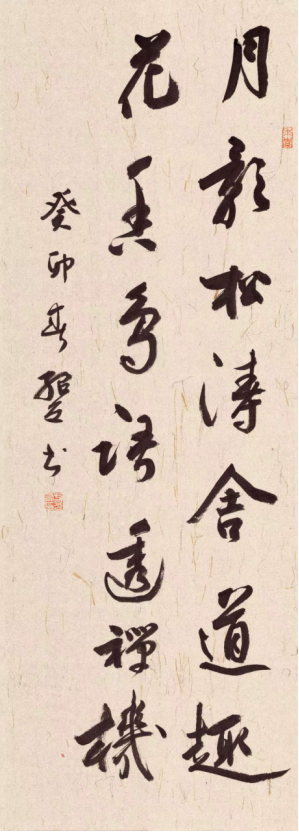 月影松涛含道趣
花香鸟语透禅機
癸卯春书